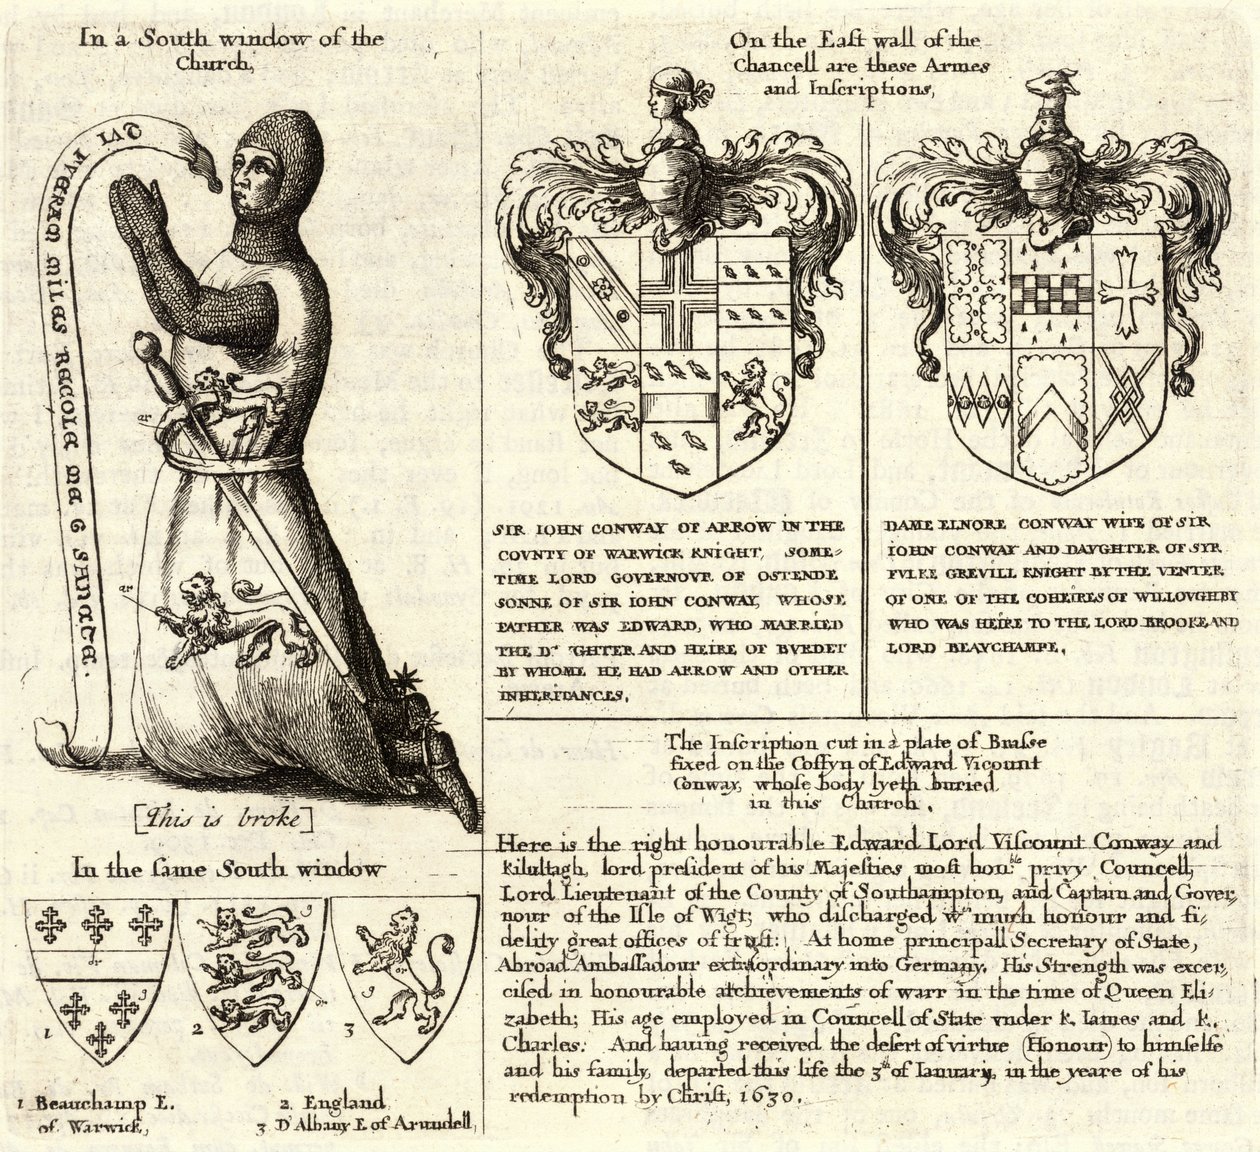 In a South window of the
Church,
QVI FVERAM MILES RECOLE ME 6 SANATE.
ar
ar
[This is broke]
In the same South window
ar
g
1
g
ar
2
ar
g
3
1 Beauchamp E.
of Warwick,
2. England
3 D'Albany E of Arundell,
On the East wall of the
Chancell are these Armes
and Inscriptions,
SIR IOHN CONWAY OF ARROW IN THE
COVNTY OF WARWICK KNIGHT, SOME-
TIME LORD GOVERNOVR OF OSTENDE
SONNE OF SIR IOHN CONWAY, WHOSE
FATHER WAS EDWARD, WHO MARRIED
THE DA GHTER AND HEIRE OF BVRDET
BY WHOME HE HAD ARROW AND OTHER
INHERITANCES,
DAME ELNORE CONWAY WIFE OF SIR
IOHN CONWAY AND DAVGHTER OF SYR
FVLKE GREVILL KNIGHT BY THE VENTER
OF ONE OF THE COHEIRES OF WILLOVGHBY
WHO WAS HEIRE TO THE LORD BROOKE AND
LORD BEAVCHAMPE,
The Inscription cut in a plate of Brasse
fixed on the Coffyn of Edward Vicount
Conway, whose body lyeth buried
in this Church,
Here is the right honourable Edward Lord Viscount Conway and
Kilultagh, lord president of his Majesties most honble privy Councell,
Lord Lieutenant of the County of Southampton, and Captain and Gover-
nour of the Isle of Wigt; who discharged wth much honour and fi-
delity great offices of trust: At home principall Secretary of State,
Abroad Ambassadour extraordinary into Germany. His Strength was excer-
cised in honourable atchievements of warr in the time of Queen Eli-
zabeth; His age employed in Councell of State vnder K. Iames and K.
Charles. And hauing received the desert of virtue (Honour) to himselfe
and his family, departed this life the 3th of Ianuary, in the yeare of his
redemption by Christ, 1630.